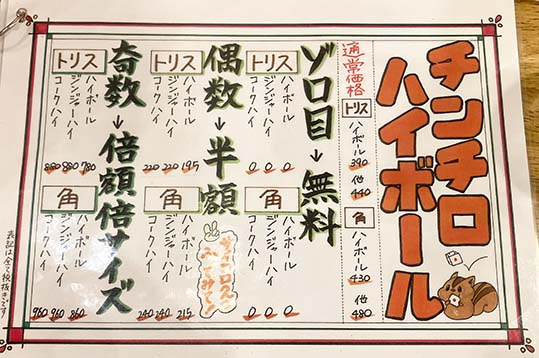 チンチロ
ハイボール
通常価格
トリス
ハイボール 390
他 440
角
ハイボール 430
他 480
ゾロ目→無料
トリス
ハイボール 0
ジンジャーハイ 0
コークハイ 0
角
ハイボール 0
ジンジャーハイ 0
コークハイ 0
偶数→半額
トリス
ハイボール 195
ジンジャーハイ 220
コークハイ 220
角
ハイボール 215
ジンジャーハイ 240
コークハイ 240
奇数→倍額倍サイズ
トリス
ハイボール 780
ジンジャーハイ 880
コークハイ 880
角
ハイボール 860
ジンジャーハイ 960
コークハイ 960
表記は全て税抜きです